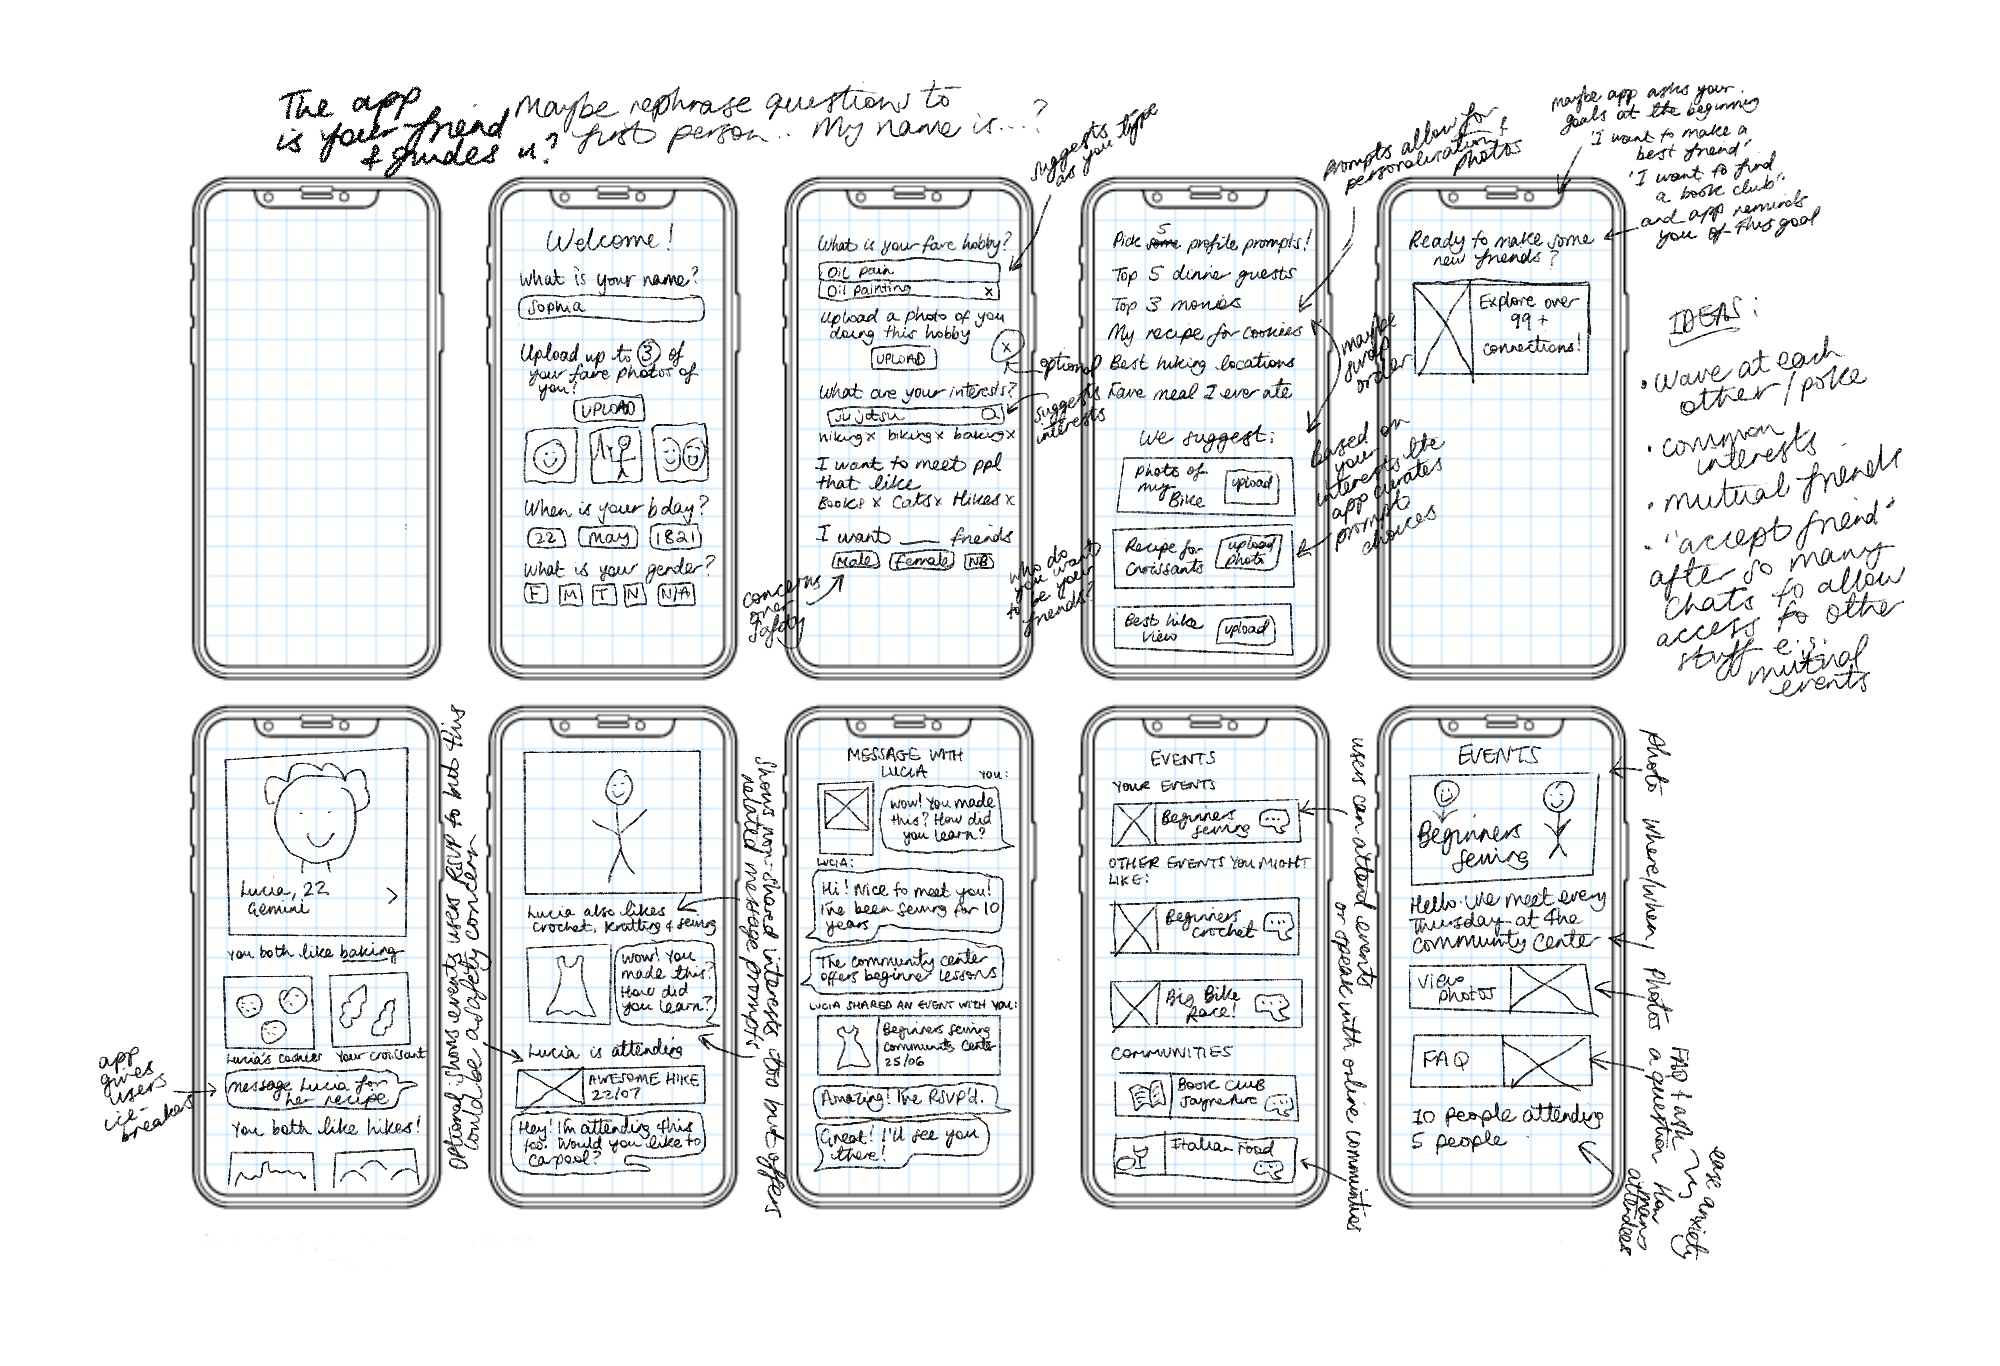 The app
is your friend
& guides u?
Maybe rephrase questions to
first person.. My name is...?
suggests type
as you type
prompts allow for
personalization &
photos
maybe app asks your
goals at the beginning
'I want to make a
best friend'
'I want to find
a book club'
and app reminds
you of this goal
Welcome!
What is your name?
Sophia
Upload up to 3 of
your fave photos of
you!
UPLOAD
When is your bday?
22 May 1821
What is your gender?
F M T N N/A
What is your fave hobby?
Oil pain
Oil painting x
Upload a photo of you
doing this hobby
UPLOAD
x
optional
What are your interests?
Jujotsu
suggests
interests
hiking x biking x baking x
I want to meet ppl
that like
Books x Cats x Hikes x
I want ___ friends
Male Female NB
concerns
over
safety
who do
you want
to be your
friends?
Pick some 5 profile prompts!
Top 5 dinner guests
Top 3 movies
My recipe for cookies
Best hiking locations
Fave meal I ever ate
maybe
swap
order
We suggest:
Photo of
my
Bike
upload
Recipe for
Croissants
upload
photo
Best hike
view
upload
based on
your
interests the
app curates
prompt
choices
Ready to make some
new friends?
Explore over
99+
connections!
IDEAS:
• wave at each
other / poke
• common
interests
• mutual friends
• "accept friend"
after so many
chats to allow
access to other
stuff e.g.
mutual
events
Lucia, 22
Gemini
>
You both like baking
Lucia's cookies
Your croissant
Message Lucia for
her recipe
You both like hikes!
app
gives
users
ice-
breakers
Optional: shows events users RSVP to but this
could be a safety concern
Lucia also likes
crochet, knitting & sewing
Wow! You
made this?
How did
you learn?
Lucia is attending
AWESOME HIKE
22/07
Hey! I'm attending this
too! Would you like to
carpool?
Shows non-shared interests too but offers
related message prompts
MESSAGE WITH
LUCIA
YOU:
Wow! You made
this? How did
you learn?
LUCIA:
Hi! Nice to meet you!
I've been sewing for 10
years
The community center
offers beginner lessons
LUCIA SHARED AN EVENT WITH YOU:
Beginners sewing
community center
25/06
Amazing! I've RSVP'd.
Great! I'll see you
there!
EVENTS
YOUR EVENTS
Beginners
sewing
OTHER EVENTS YOU MIGHT
LIKE:
Beginners
crochet
Big Bike
Race!
COMMUNITIES
Book Club
Italian Food
users can attend events
or speak with online communities
EVENTS
Beginners
sewing
Hello we meet every
Thursday at the
community center
View
photos
FAQ
10 people attending
5 people
Photo
where/when
Photos
FAQ & ask
a question
How
many
attendees
ease anxiety